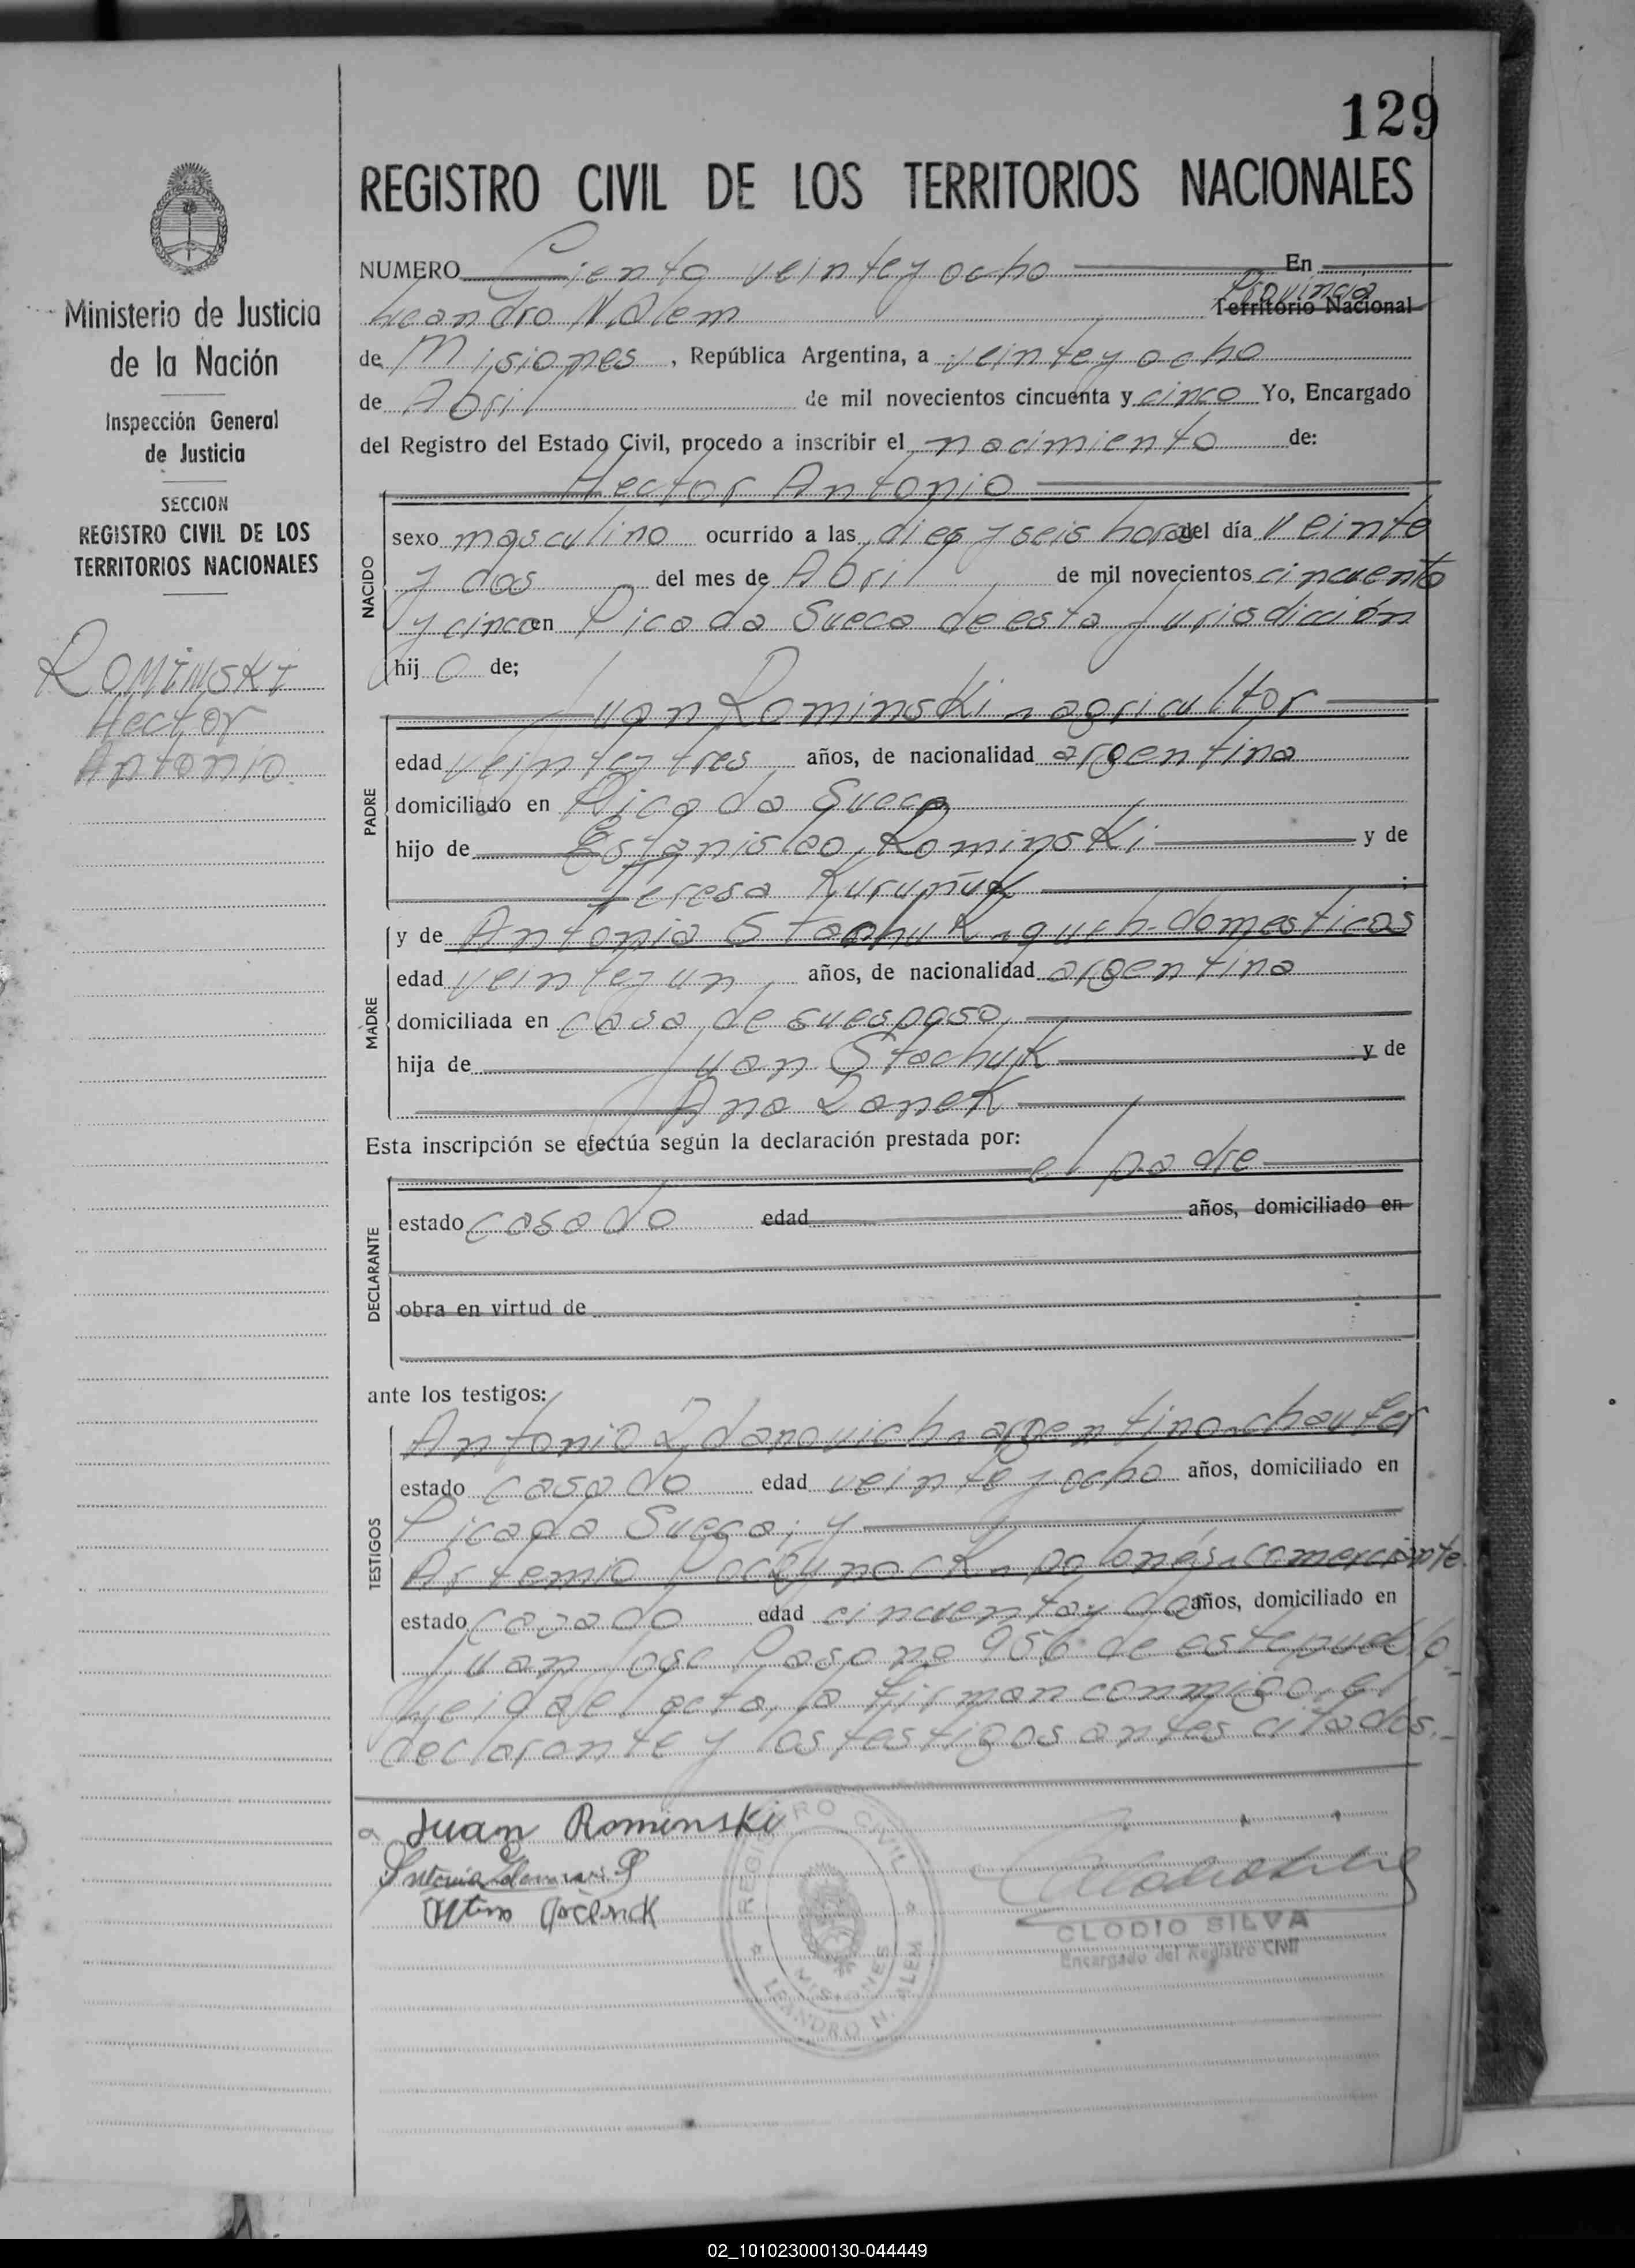 129
REGISTRO CIVIL DE LOS TERRITORIOS NACIONALES
Ministerio de Justicia
de la Nación
Inspección General
de Justicia
SECCION
REGISTRO CIVIL DE LOS
TERRITORIOS NACIONALES
ROMINSKI
Hector
Antonio
NUMERO Ciento veinte y ocho En
Provincia
Leandro N. Alem Territorio Nacional
de Misiones, República Argentina, a veinte y ocho
de Abril de mil novecientos cincuenta y cinco Yo, Encargado
del Registro del Estado Civil, procedo a inscribir el nacimiento de:
Hector Antonio
NACIDO
sexo masculino ocurrido a las diez y seis horas del día veinte
y dos del mes de Abril de mil novecientos cincuenta
y cinco en Picada Sueca de esta jurisdicción
hijo de;
Juan Rominski - agricultor
PADRE
edad veinte y tres años, de nacionalidad argentina
domiciliado en Picada Sueca
hijo de Estanislao Rominski y de
Teresa
MADRE
y de Antonia Stachuk - queh. domesticos
edad veinte y un años, de nacionalidad argentina
domiciliada en casa de su esposo
hija de Juan Stachuk y de
Ana Zanek
Esta inscripción se efectúa según la declaración prestada por:
el padre
DECLARANTE
estado casado edad años, domiciliado en
obra en virtud de
ante los testigos:
TESTIGOS
Antonio Zdanovich - argentino - chaufer
estado casado edad veinte y ocho años, domiciliado en
Picada Sueca; y
Artemio - polonés - comerciante
estado casado edad cincuenta y dos años, domiciliado en
Juan José Paso no 956 de este pueblo.
Leida el acta, la firman conmigo, el
declarante y los testigos antes citados.-
Juan Rominski
REGISTRO CIVIL
MISIONES
LEANDRO N. ALEM
CLODIO SILVA
Encargado del Registro Civil
02_101023000130-044449